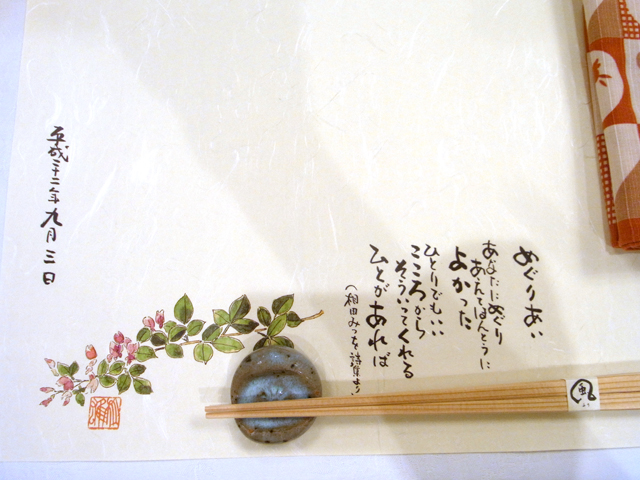 めぐりあい
あなたにめぐり
あえてほんとうに
よかった
ひとりでもいい
こころから
そういってくれる
ひとがあれば
(相田みつを 詩集より)
平成二十二年九月三日
風